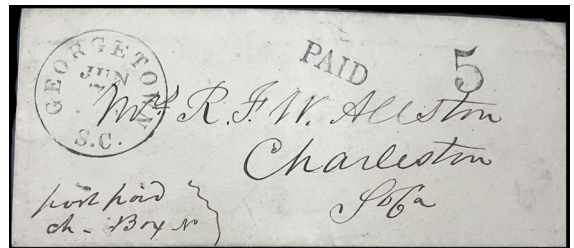 GEORGETOWN
JUN
S.C.
PAID
5
Mrs R. F. W. Allston
Charleston
So Ca
post paid
ch - Box N